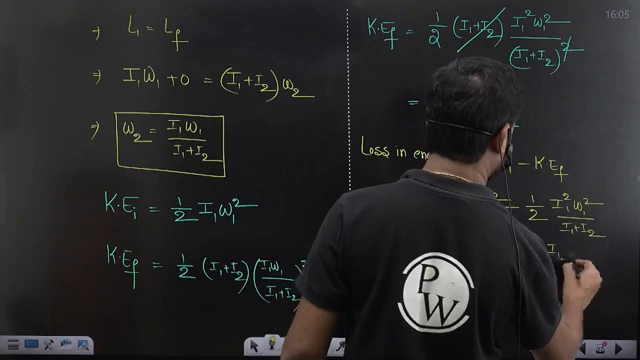 ⇒ Li = Lf
⇒ I₁ω₁ + 0 = (I₁+I₂)ω₂
⇒ ω₂ = I₁ω₁ / (I₁+I₂)
K·Ei = 1/2 I₁ω₁²
K·Ef = 1/2 (I₁+I₂) (I₁ω₁ / (I₁+I₂))²
K·Ef = 1/2 (I₁+I₂) I₁²ω₁² / (I₁+I₂)²
=
Loss in
- K·Ef
- 1/2 I₁²ω₁² / (I₁+I₂)
I₁
PW
16:05